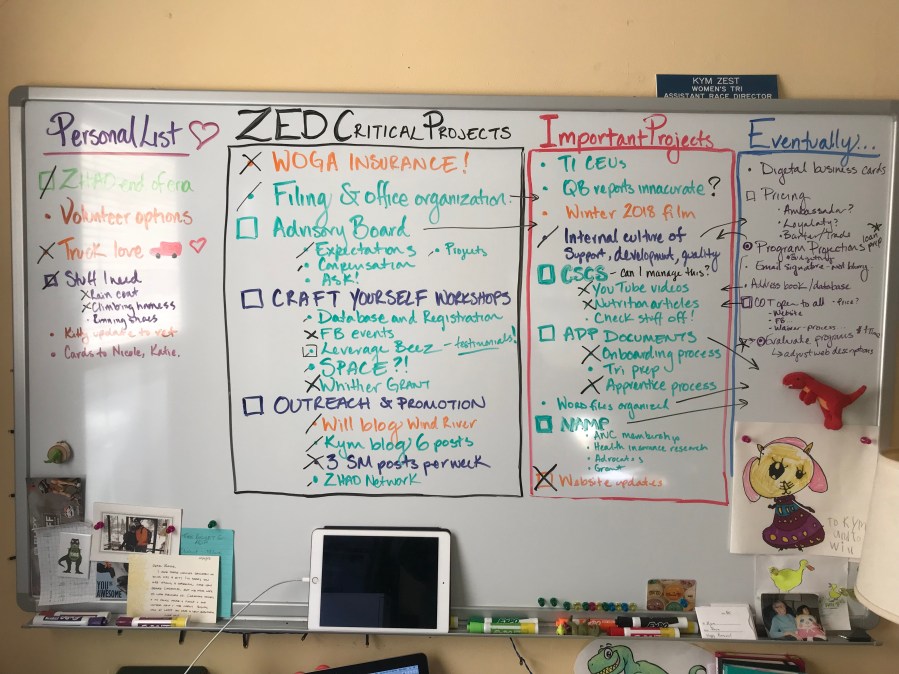 KYM ZEST
WOMEN'S TRI
ASSISTANT RACE DIRECTOR
Personal List
ZHAO end of era
Volunteer options
Truck love
Stuff I need
Rain coat
Climbing harness
Running shoes
Kitty update to vet
Cards to Nicole, Katie.
ZED CRITICAL PROJECTS
WOGA INSURANCE!
Filing & office organization
Advisory Board
Expectations • Projects
Compensation
ASK!
CRAFT YOURSELF WORKSHOPS
Database and Registration
FB events
Leverage Beez - testimonials!
SPACE?!
Whither GRANT
OUTREACH & PROMOTION
Will blog Wind River
Kym blog 6 posts
3 SM posts per week
ZHAO Network
Important Projects
TI CEUs
QB reports innacurate?
Winter 2018 film
Internal culture of
Support, development, quality
CSCS - can I manage this?
YouTube videos
Nutrition articles
Check stuff off!
APP DOCUMENTS
Onboarding process
Tri prep
Apprentice process
Word files organized
NAMP
ANC membership
Health insurance research
Advocates
Grant
Website updates
Eventually...
Digital business cards
Pricing
Ambassador?
Loyalaty?
Barter/Trade
loan
Program Projections
Budgeting
Email signature
Address book/database
open to all - free?
Website
FB
Evaluate programs
adjust web descriptions
TO KYM
YOU'RE
AWESOME